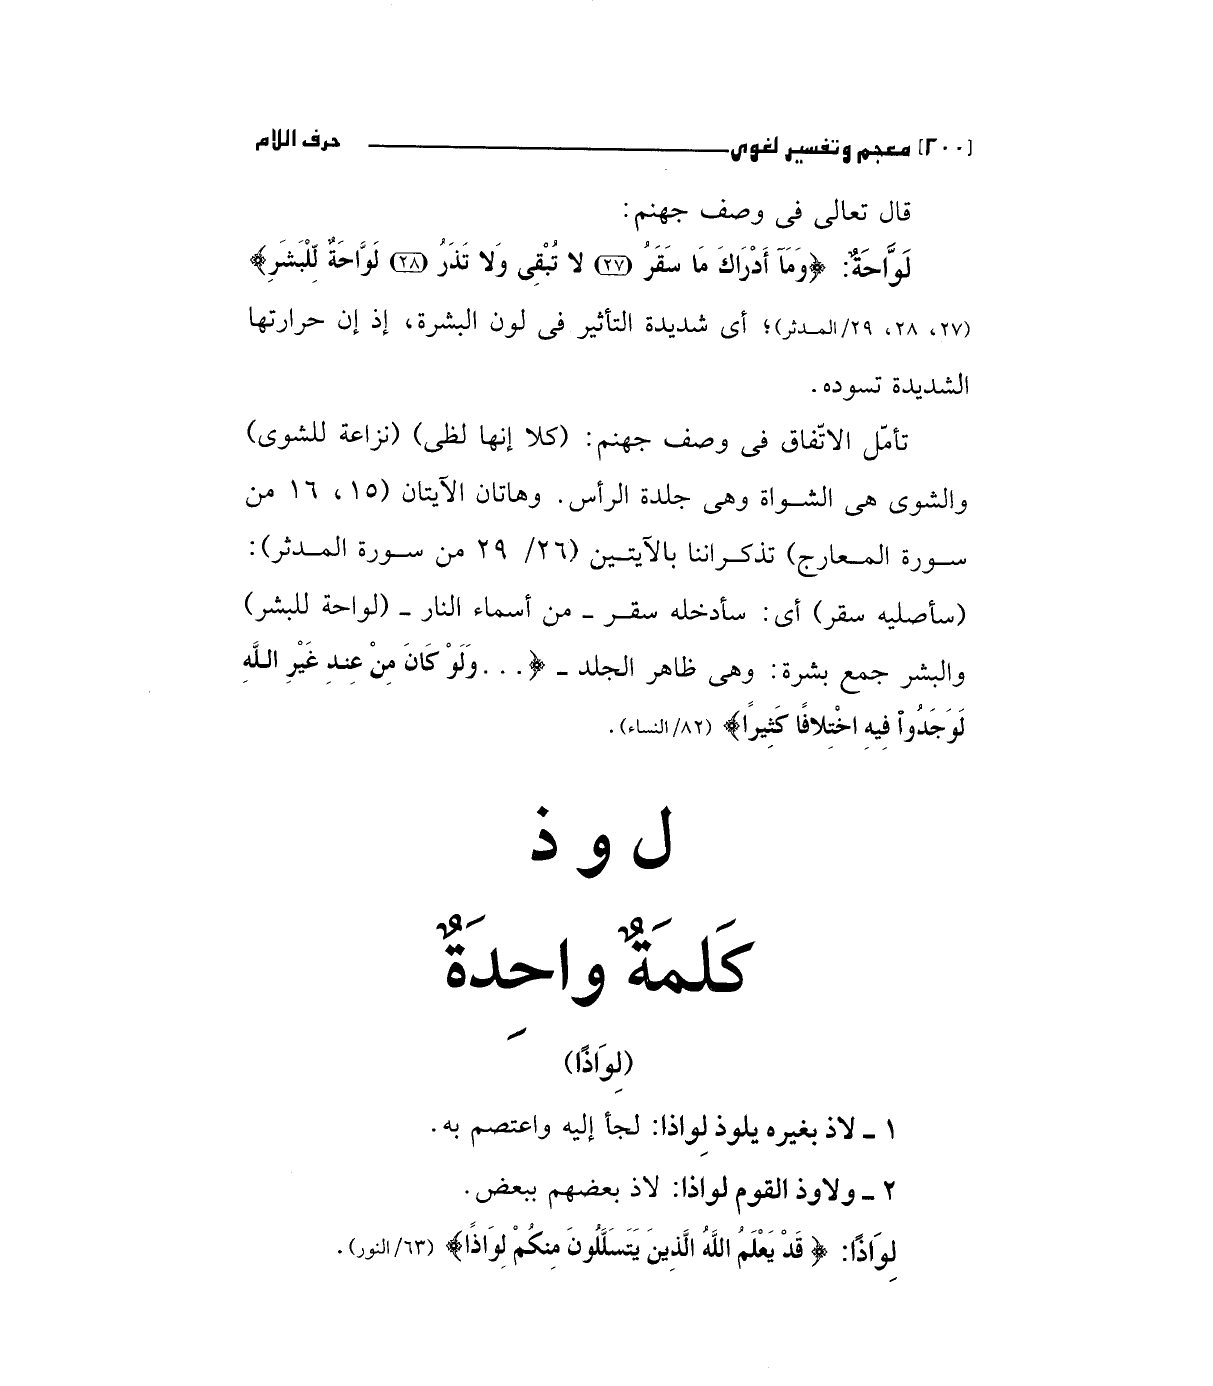 [٢٠٠] معجم وتفسير لغوى حرف اللام
قال تعالى فى وصف جهنم:
لَوَّاحَةٌ: ﴿وَمَآ أَدْرَاكَ مَا سَقَرُ (٢٧) لا تُبْقِى وَلا تَذَرُ (٢٨) لَوَّاحَةٌ لِّلْبَشَرِ﴾
(٢٧، ٢٨، ٢٩/المدثر)؛ أى شديدة التأثير فى لون البشرة، إذ إن حرارتها
الشديدة تسوده.
تأمّل الاتّفاق فى وصف جهنم: (كلا إنها لظى) (نزاعة للشوى)
والشوى هى الشواة وهى جلدة الرأس. وهاتان الآيتان (١٥، ١٦ من
سورة المعارج) تذكراننا بالآيتين (٢٦/ ٢٩ من سورة المدثر):
(سأصليه سقر) أى: سأدخله سقر ـ من أسماء النار ـ (لواحة للبشر)
والبشر جمع بشرة: وهى ظاهر الجلد ـ ﴿...وَلَوْ كَانَ مِنْ عِندِ غَيْرِ اللَّهِ
لَوَجَدُوا۟ فِيهِ اخْتِلافًا كَثِيرًا﴾ (٨٢/ النساء).
ل و ذ
كَلَمَةٌ واحِدَةٌ
(لِوَاذًا)
١ ـ لاذ بغيره يلوذ لِواذا: لجأ إليه واعتصم به.
٢ ـ ولاوذ القوم لواذا: لاذ بعضهم ببعض.
لِوَاذًا: ﴿قَدْ يَعْلَمُ اللَّهُ الَّذِينَ يَتَسَلَّلُونَ مِنكُمْ لِوَاذًا﴾ (٦٣/ النور).